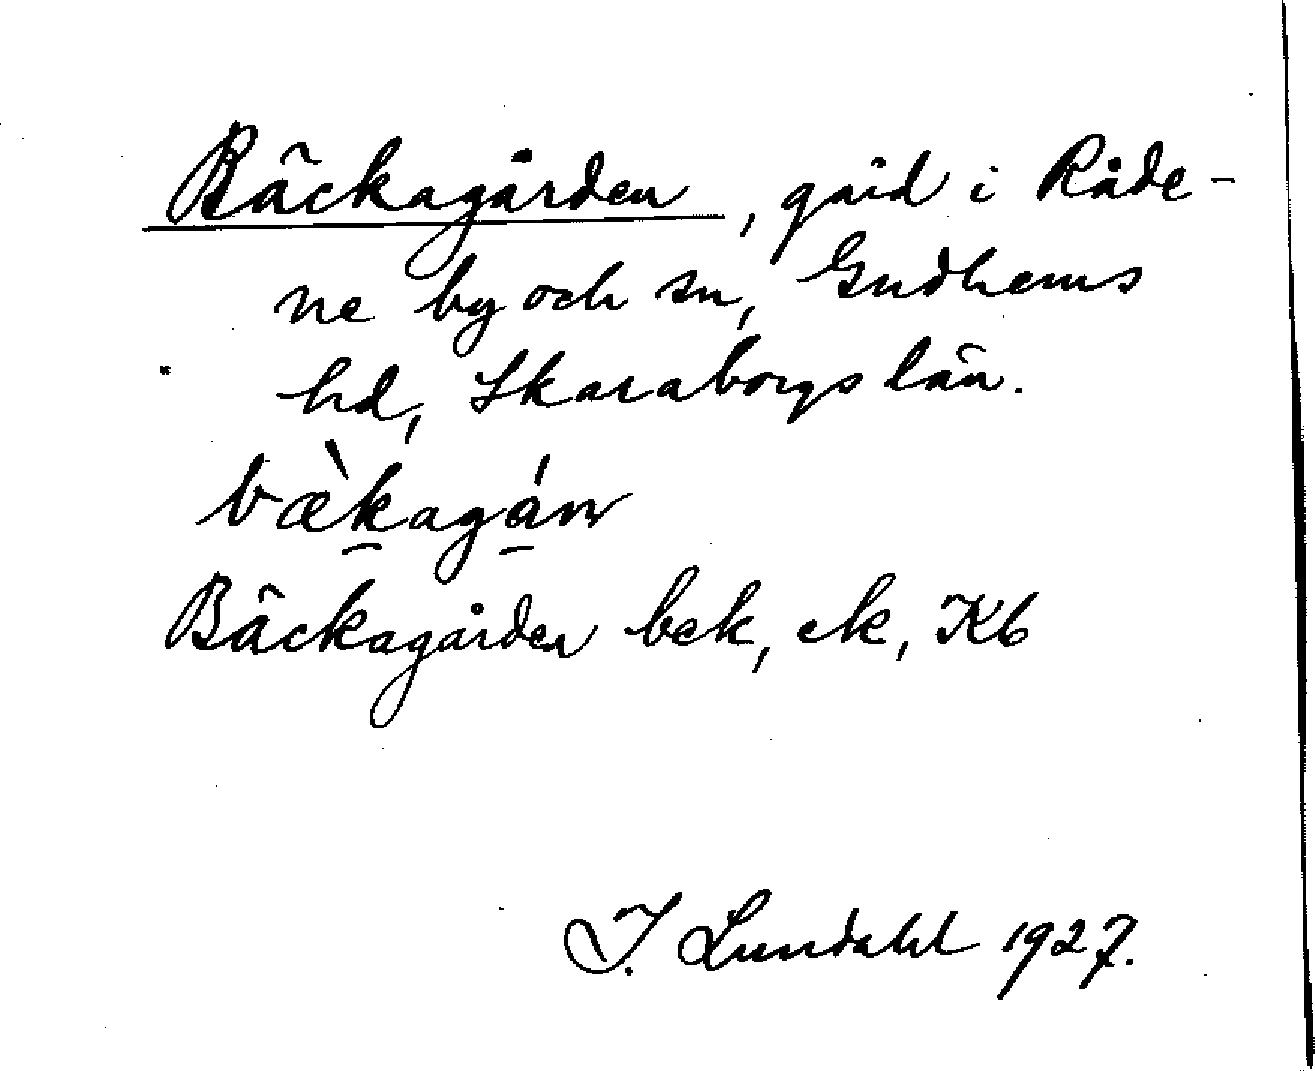 Bäckagården, gård i Råde-
ne by och sn, Gudhems
hd, Skaraborgs län.
bæ̀kagán
Bäckagården bek, ek, Kb
I. Lundahl 1927.